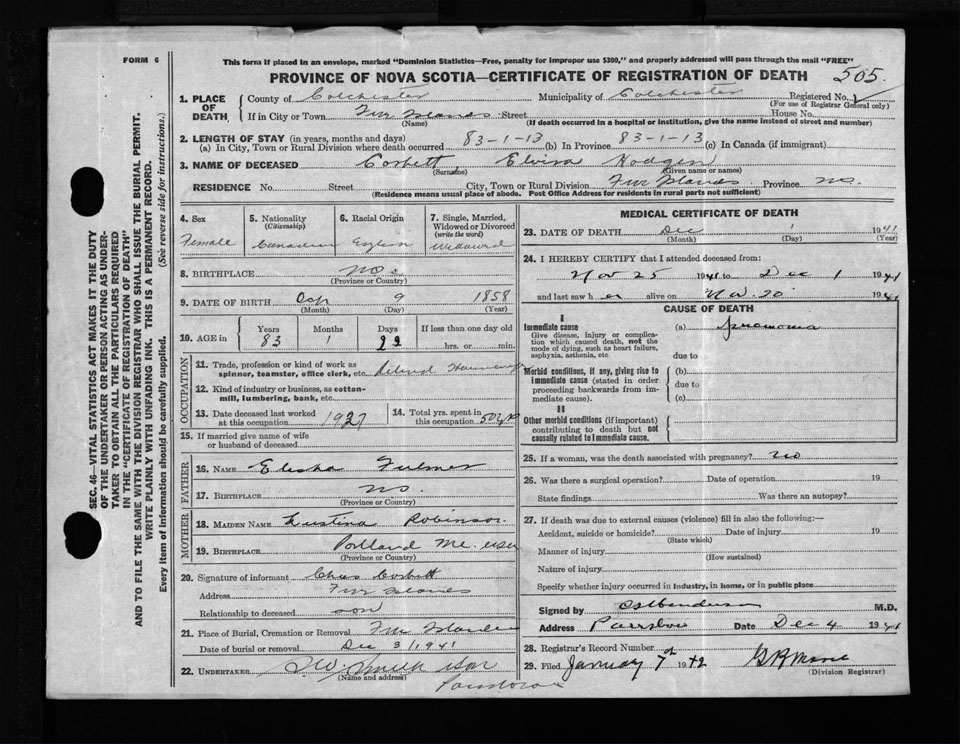 FORM 6
This form if placed in an envelope, marked "Dominion Statistics—Free, penalty for improper use $300," and properly addressed will pass through the mail "FREE"
PROVINCE OF NOVA SCOTIA—CERTIFICATE OF REGISTRATION OF DEATH 505.
1. PLACE OF DEATH, County of Colchester Municipality of Colchester Registered No.
(For use of Registrar General only)
If in City or Town. Five Islands Street House No.
(Name) (If death occurred in a hospital or institution, give the name instead of street and number)
2. LENGTH OF STAY (in years, months and days)
(a) In City, Town or Rural Division where death occurred 83-1-13 (b) In Province 83-1-13 (c) In Canada (if immigrant)
3. NAME OF DECEASED Corbett Elvira Hodgen
(Surname) (Given name or names)
RESIDENCE No. Street City, Town or Rural Division Five Islands Province N.S.
(Residence means usual place of abode. Post Office Address for residents in rural parts not sufficient)
4. Sex
Female
5. Nationality
(Citizenship)
Canadian
6. Racial Origin
English
7. Single, Married, Widowed or Divorced
(write the word)
Widowed
8. BIRTHPLACE N.S.
(Province or Country)
9. DATE OF BIRTH 9 1858
(Month) (Day) (Year)
10. AGE in Years Months Days If less than one day old
83 1 22 hrs. or min.
OCCUPATION
11. Trade, profession or kind of work as
spinner, teamster, office clerk, etc. Retired
12. Kind of industry or business, as cotton-
mill, lumbering, bank, etc.
13. Date deceased last worked
at this occupation 1927
14. Total yrs. spent in
this occupation 50 yrs
15. If married give name of wife
or husband of deceased
FATHER
16. NAME Elisha Fulmer
17. BIRTHPLACE N.S.
(Province or Country)
MOTHER
18. MAIDEN NAME Robinson
19. BIRTHPLACE Portland Me. USA
(Province or Country)
20. Signature of informant Chas Corbett
Address Five Islands
Relationship to deceased son
21. Place of Burial, Cremation or Removal Five Islands
Date of burial or removal Dec 3/1941
22. UNDERTAKER Smith & Son
(Name and address)
Parrsboro
MEDICAL CERTIFICATE OF DEATH
23. DATE OF DEATH Dec 1 1941
(Month) (Day) (Year)
24. I HEREBY CERTIFY that I attended deceased from:
Nov 25 1941 to Dec 1 1941
and last saw her alive on Nov. 30 1941
CAUSE OF DEATH
I
Immediate cause (a) Pneumonia
Give disease, injury or complica-
tion which caused death, not the
mode of dying, such as heart failure,
asphyxia, asthenia, etc due to
Morbid conditions, if any, giving rise to (b)
immediate cause (stated in order due to
proceeding backwards from im-
mediate cause). (c)
II
Other morbid conditions (if important)
contributing to death but not
causally related to immediate cause.
25. If a woman, was the death associated with pregnancy? No
26. Was there a surgical operation? Date of operation 19
State findings Was there an autopsy?
27. If death was due to external causes (violence) fill in also the following:—
Accident, suicide or homicide? Date of injury 19
(State which)
Manner of injury
(How sustained)
Nature of injury
Specify whether injury occurred in industry, in home, or in public place
Signed by M.D.
Address Parrsboro Date Dec 4 1941
28. Registrar's Record Number
29. Filed January 7th 1942
(Division Registrar)
SEC. 46—VITAL STATISTICS ACT MAKES IT THE DUTY
OF THE UNDERTAKER OR PERSON ACTING AS UNDER-
TAKER TO OBTAIN ALL THE PARTICULARS REQUIRED
IN THE "CERTIFICATE OF REGISTRATION OF DEATH"
AND TO FILE THE SAME WITH THE DIVISION REGISTRAR WHO SHALL ISSUE THE BURIAL PERMIT.
WRITE PLAINLY WITH UNFADING INK. THIS IS A PERMANENT RECORD.
Every item of information should be carefully supplied. (See reverse side for instructions.)